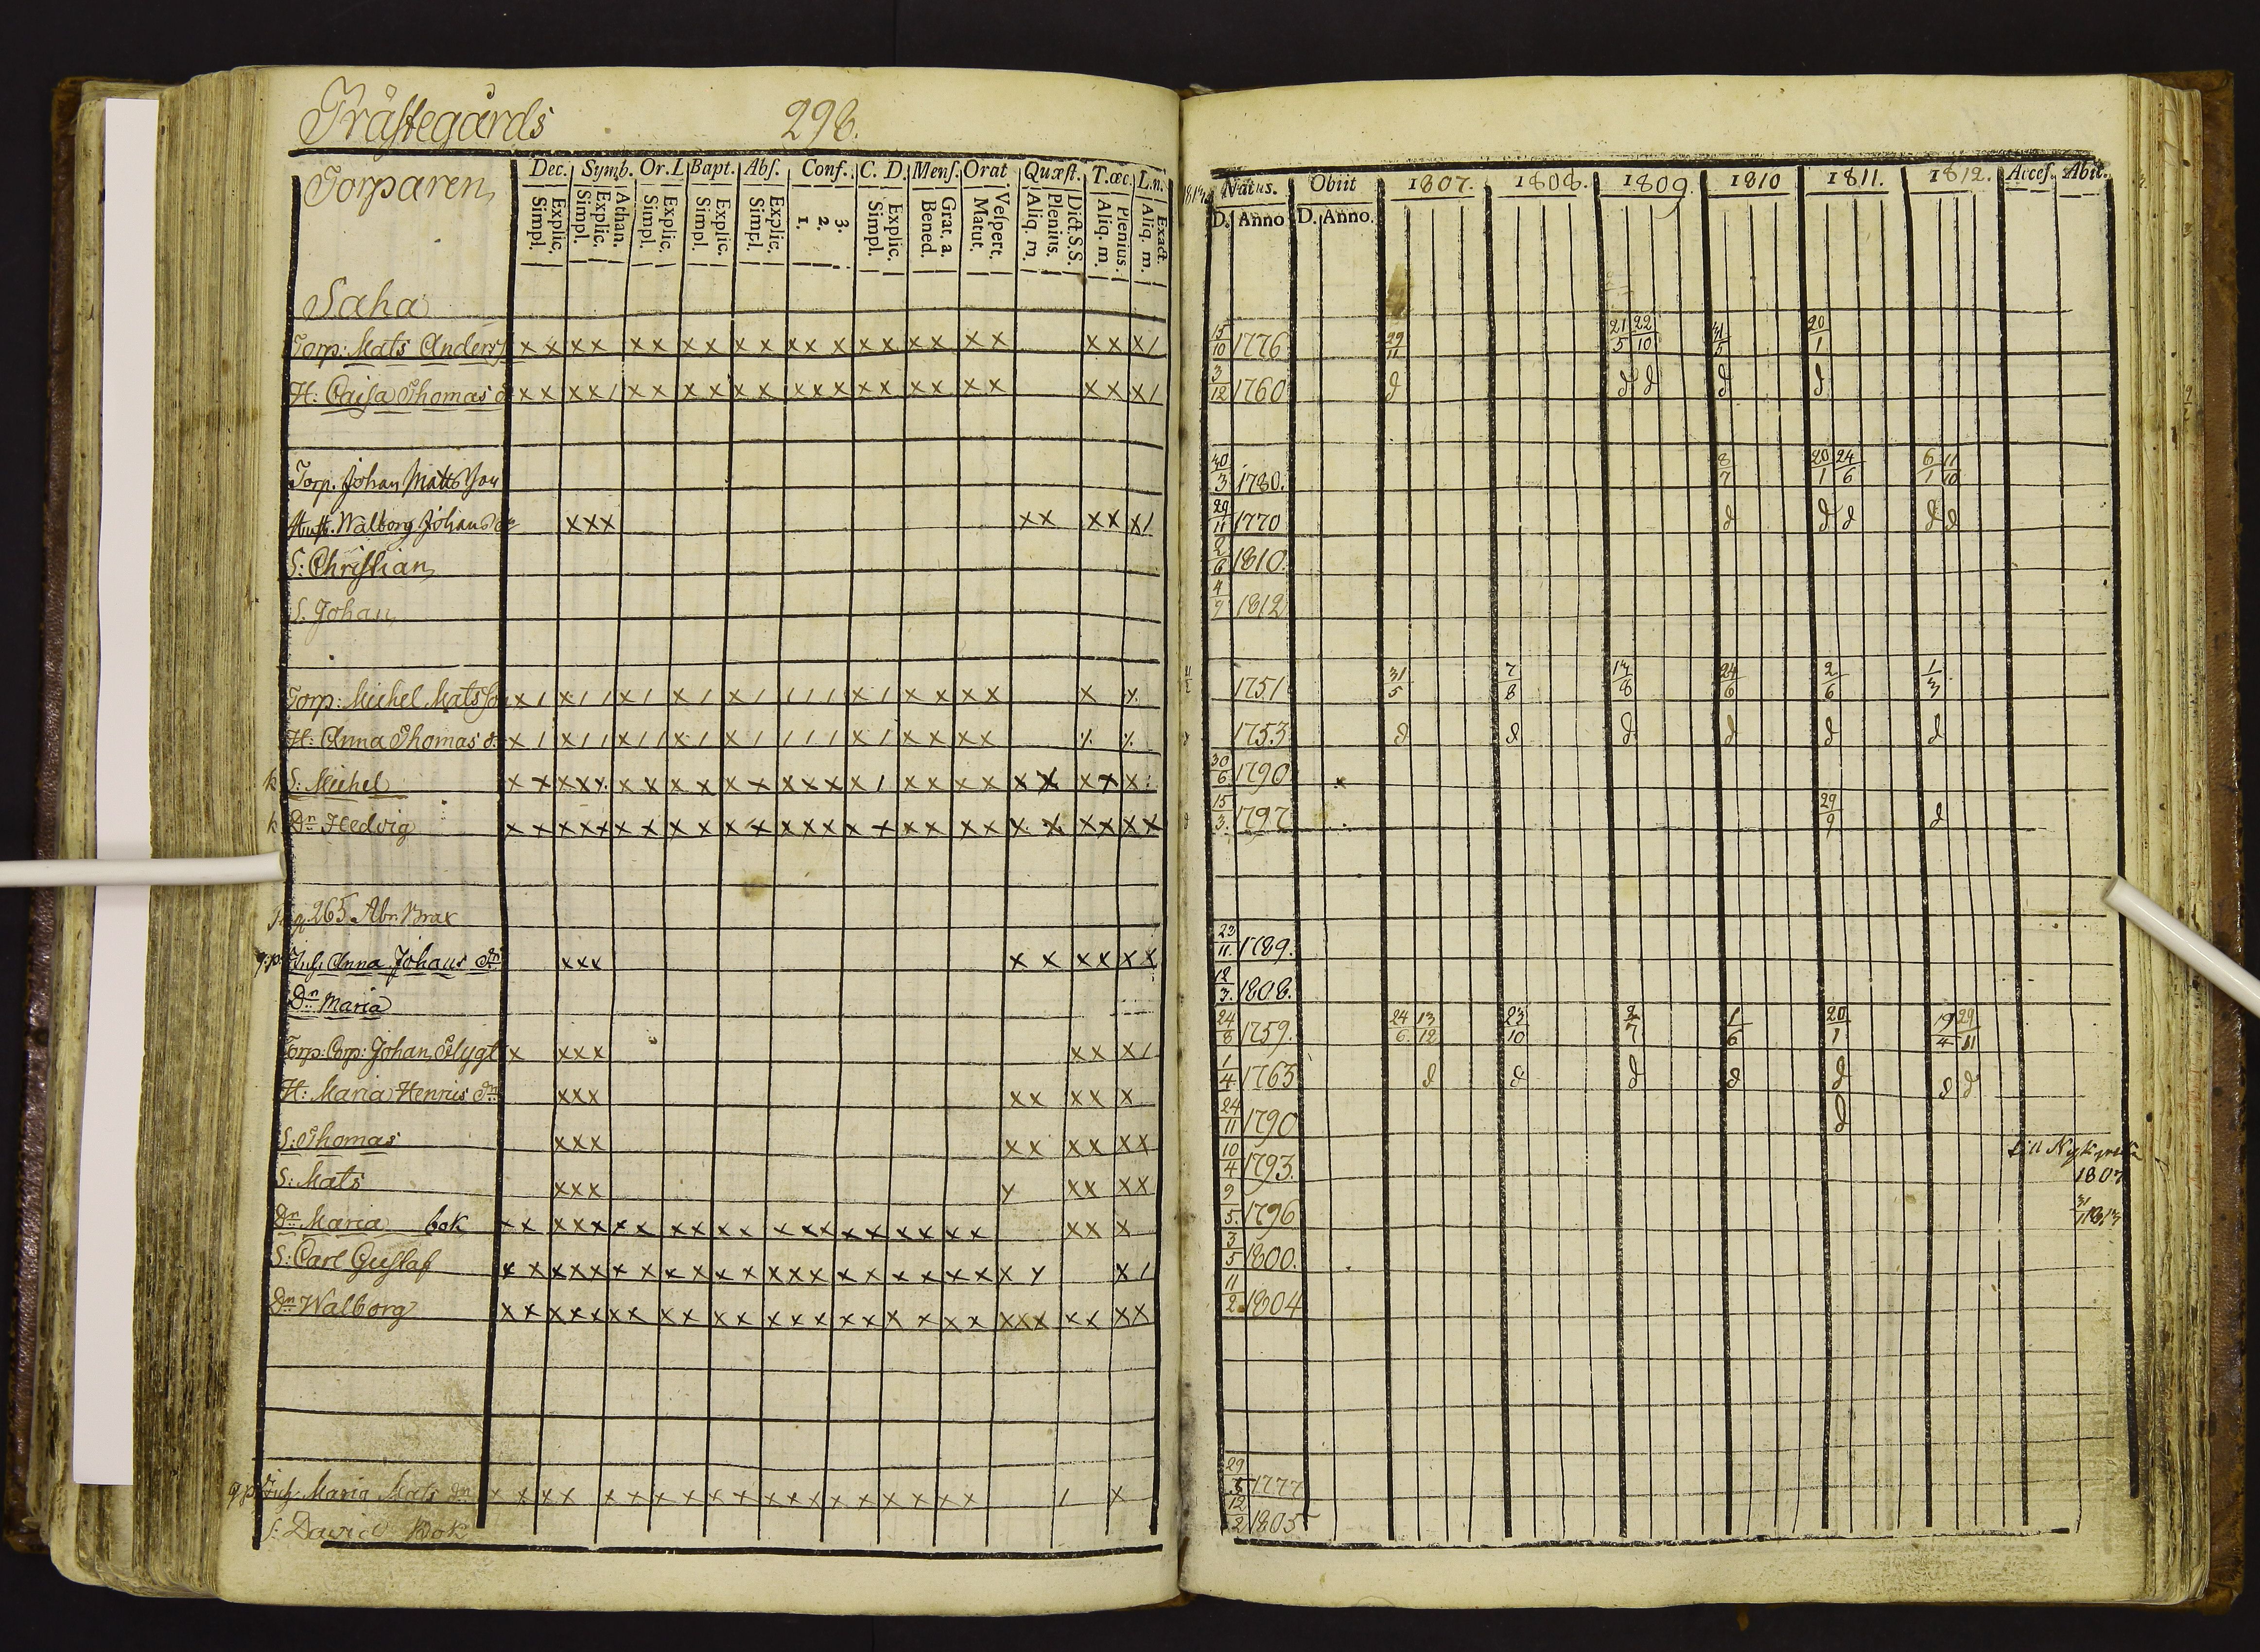 Prästegårds 298.
Torparen
Dec. Symb. Or. L Bapt. Abs. Conf. C. D. Mens. Orat Quæst. T. œc. L. n.
Explic. Simpl. Athan. Explic. Simpl. Explic. Simpl. Explic. Simpl. Explic. Simpl. 3. 2. 1. Explic. Simpl. Grat. a. Bened. Vespert. Matut. Dict. S. S. Plenius. Aliq. m. Plenius. Aliq. m Exact. Aliq. m.
1813 Natus. Obiit 1807. 1808. 1809. 1810 1811. 1812. Acces. Abit.
D. Anno D. Anno.
Saha
Torp: Mats Anders x x x x x x x x x x x x x x x x x x x x x x x / 15/10 1776 29/11 21/5 22/10 31/5 20/1
H: Caisa Thomas d x x x x / x x x x x x x x x x x x x x x x x x / 3/12 1760 d d d d d
Torp. Johan Matts Son 30/3 1780. 8/7 20/1 24/6 6/1 11/10
Hust. Walborg Johans dr x x x x x x x x / 29/11 1770 d d d d d
S: Christian 2/6 1810
S. Johan 4/9 1812
Torp: Michel Mats Son x / x / / x / x / x / / / / x / x x x x x 1751 31/5 7/8 13/8 24/6 2/6 1/3
H: Anna Thomas d. x / x / / x / / x / x / / / / x / x x x x 1753 d d d d d d
k S: Michel x x x x x x x x x x x x x x x / x x x x x x x x x 30/6 1790 x
k Dn Hedvig x x x x x x x x x x x x x x x x x x x x x x x x x x 15/3. 1797 29/9 d
265 Abr. Brax
Anna Johans dn x x x x x x x x x 23/11. 1789.
Dn Maria 12/3. 1808.
Torp: Corp: Johan Flygt x x x x x x x / 24/8 1759. 24/6. 13/12 23/10 2/7 1/6 20/1 19/4 29/11
H: Maria Henrics dn x x x x x x x x 1/4 1763 d d d d d d d
S: Thomas x x x x x x x x x 24/11 1790 d
S: Mats x x x y x x x x 10/4 1793. till Nykyrka 1807
Dn Maria bok x x x x x x x x x x x x x x x x x x x x x x 9/5. 1796 31/1 1813
S: Carl Gustaf x x x x x x x x x x x x x x x x x x x x y x / 3/5 1800.
Dn Walborg x x x x x x x x x x x x x x x x x x x x x x x x x x 11/2. 1804
Maria Mats dn x x x x x x x x x x x x x x x x x x x / x 29/8 1777
S: David Bok 12/2 1805